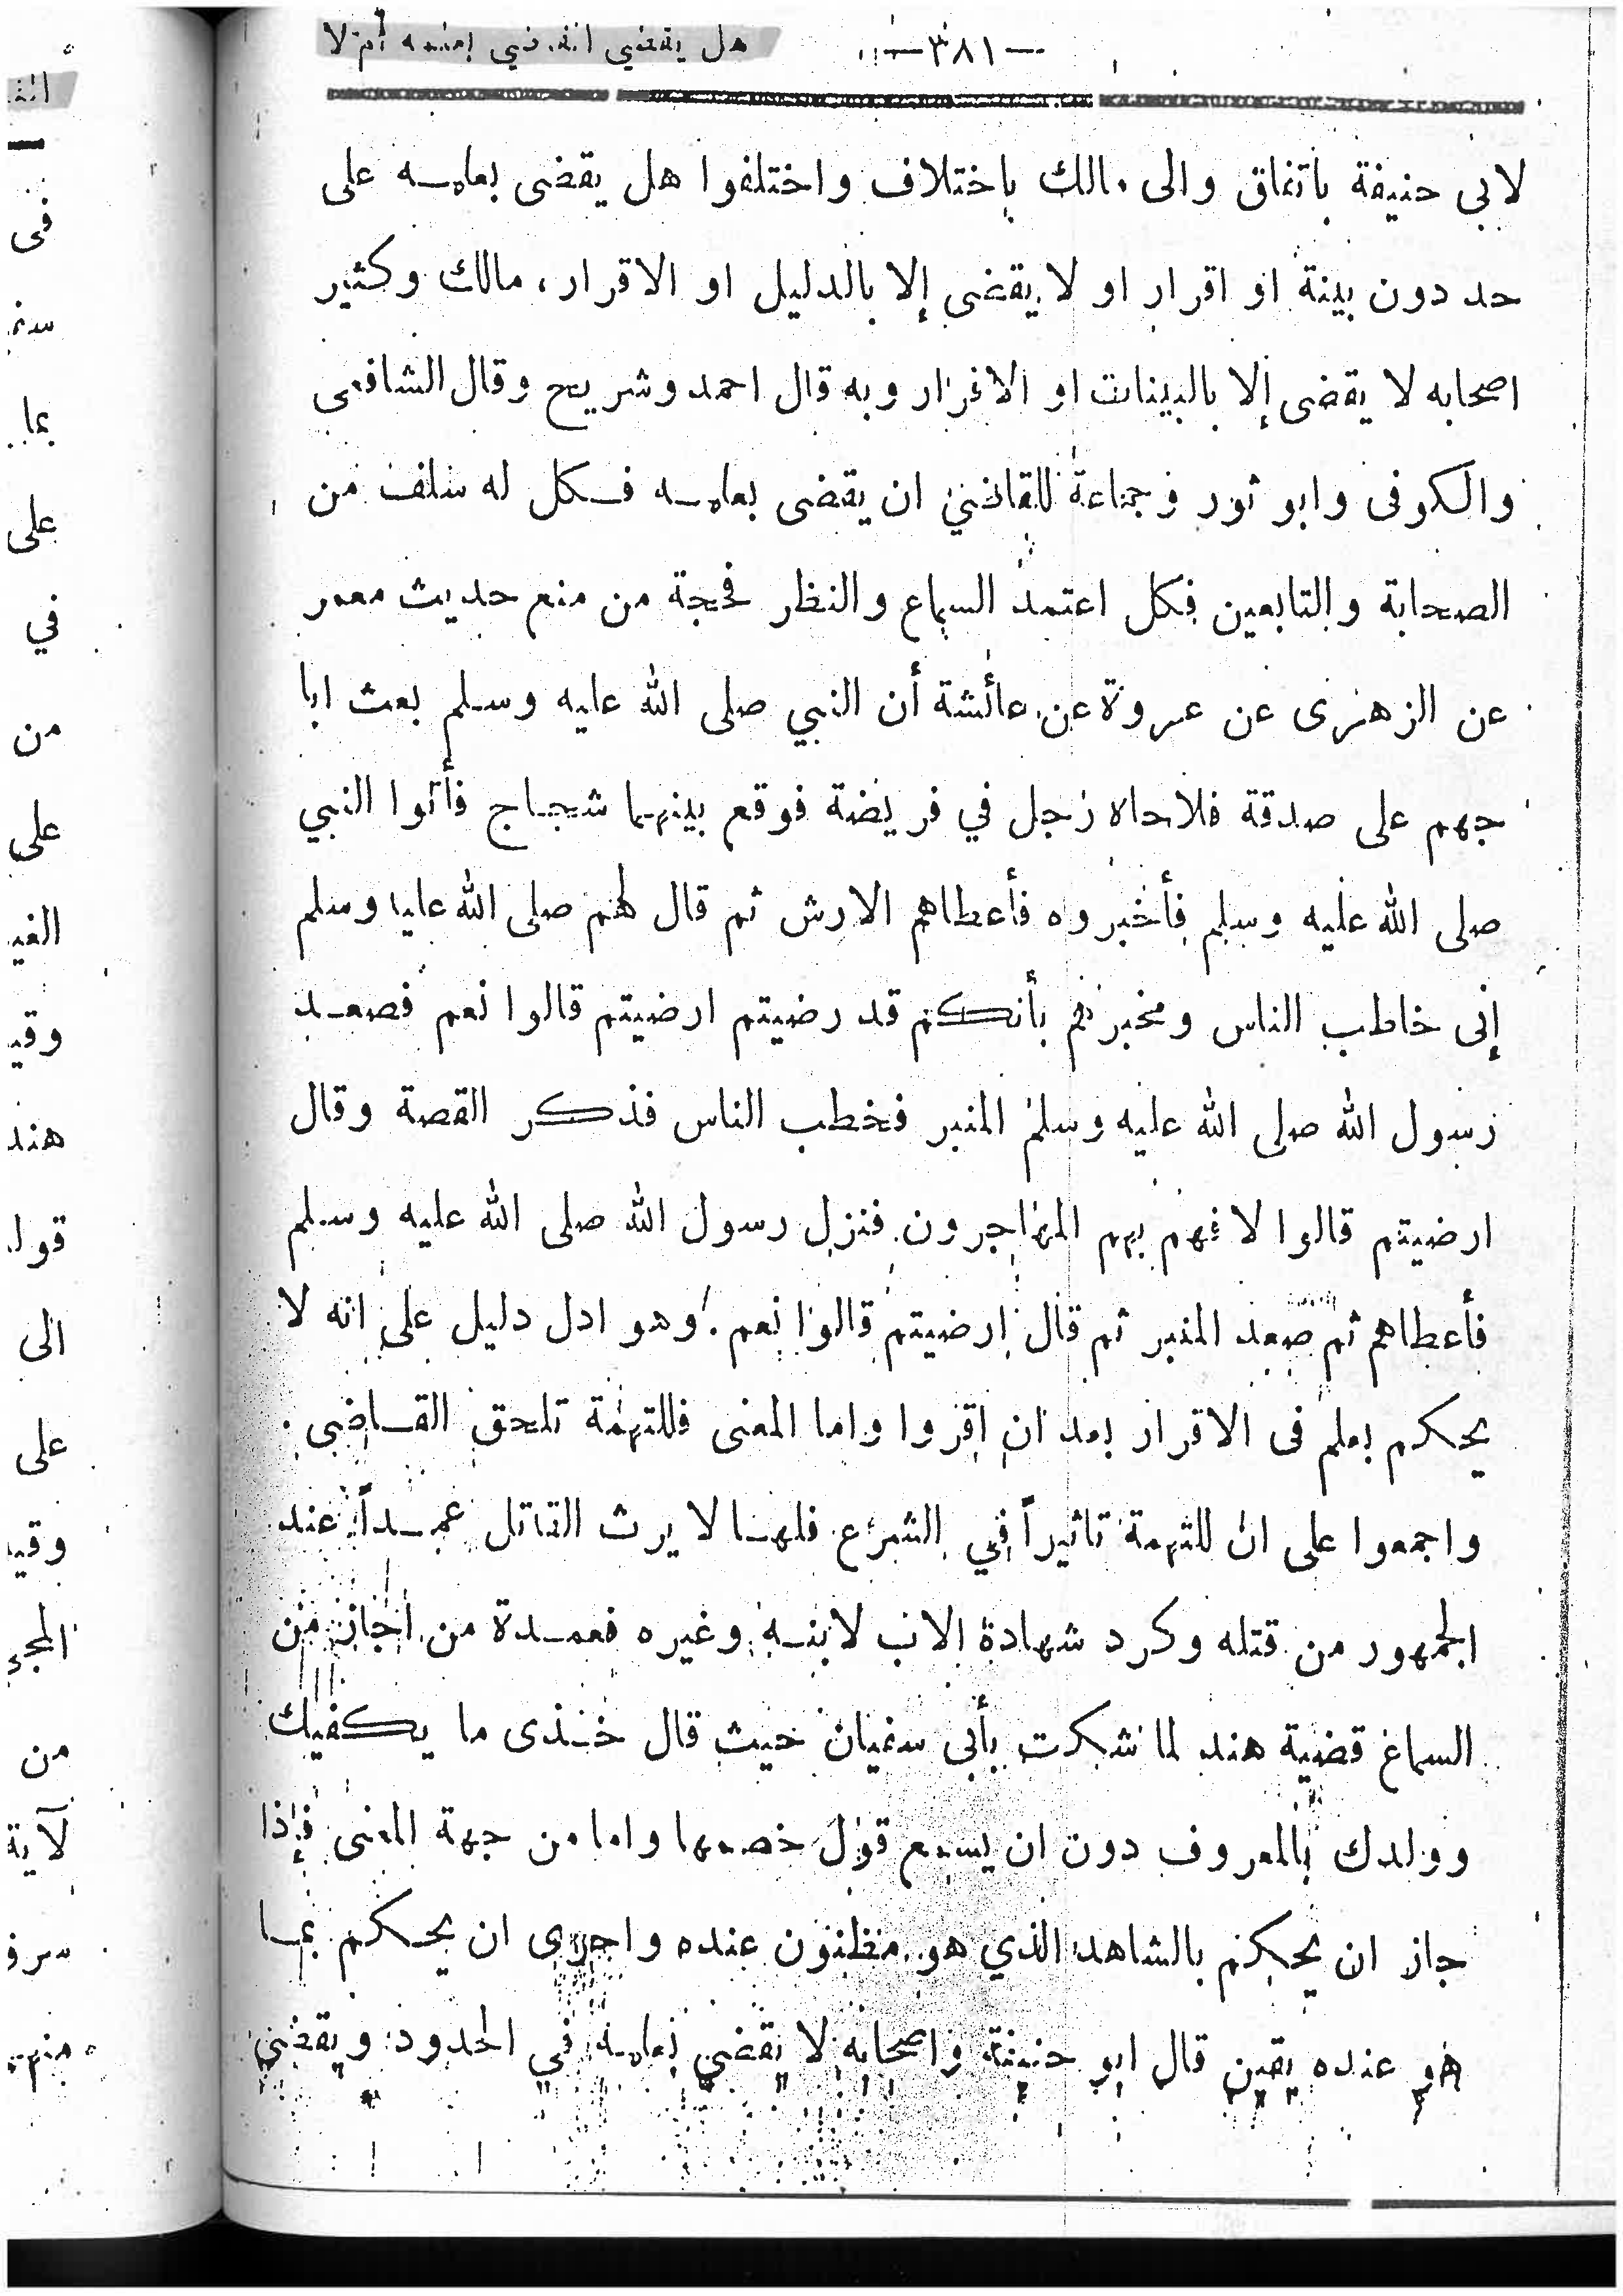 —٣٨١— هل يقضي القاضي بعلمه أم لا
لابي حنيفة باتفاق والى مالك باختلاف واختلفوا هل يقضى بعلمه على
حد دون بينة او اقرار او لا يقضى إلا بالدليل او الاقرار، مالك وكثير
اصحابه لا يقضى إلا بالبينات او الاقرار وبه قال احمد وشريح وقال الشافعى
والكوفى وابو ثور وجماعة للقاضي ان يقضى بعلمه فكل له سلف من
الصحابة والتابعين فكل اعتمد السماع والنظر فحجة من منع حديث معمر
عن الزهرى عن عروة عن عائشة أن النبي صلى الله عليه وسلم بعث ابا
جهم على صدقة فلاحاه رجل في فريضة فوقع بينهما شجاج فأتوا النبي
صلى الله عليه وسلم فأخبروه فأعطاهم الارش ثم قال لهم صلى الله عليه وسلم
إنى خاطب الناس ومخبرهم بأنكم قد رضيتم ارضيتم قالوا نعم فصعد
رسول الله صلى الله عليه وسلم المنبر فخطب الناس فذكر القصة وقال
ارضيتم قالوا لا فهم بهم المهاجرون فنزل رسول الله صلى الله عليه وسلم
فأعطاهم ثم صعد المنبر ثم قال ارضيتم قالوا نعم. وهو ادل دليل على انه لا
يحكم بعلم فى الاقرار بعد ان اقروا واما المعنى فللتهمة تلحق القاضى.
واجمعوا على ان للتهمة تاثيراً في الشرع فلهذا لا يرث القاتل عمداً عند
الجمهور من قتله وكرد شهادة الاب لابنه وغيره فعمدة من اجاز من
السماع قضية هند لما شكت بأبى سفيان حيث قال خذى ما يكفيك
وولدك بالمعروف دون ان يسمع قول خصمها واما من جهة المعنى فإذا
جاز ان يحكم بالشاهد الذي هو مظنون عنده واحرى ان يحكم بما
هو عنده يقين قال ابو حنيفة واصحابه لا يقضي بعلمه في الحدود ويقضي
فى
بما
على
في
من
على
وقيـ
هند
الى
على
وقيـ
من
لآية